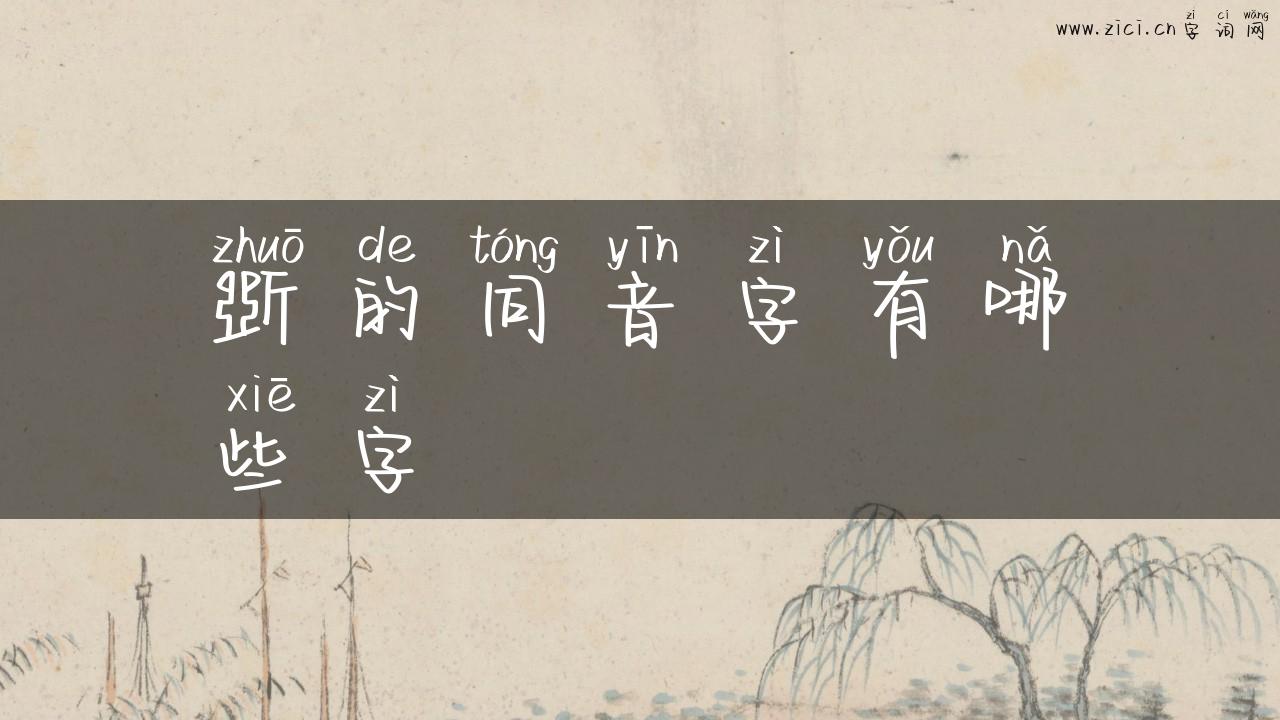 www.zici.cn
zì cí wǎng
字词网
zhuō de tóng yīn zì yǒu nǎ
斲的同音字有哪
xiē zì
些字